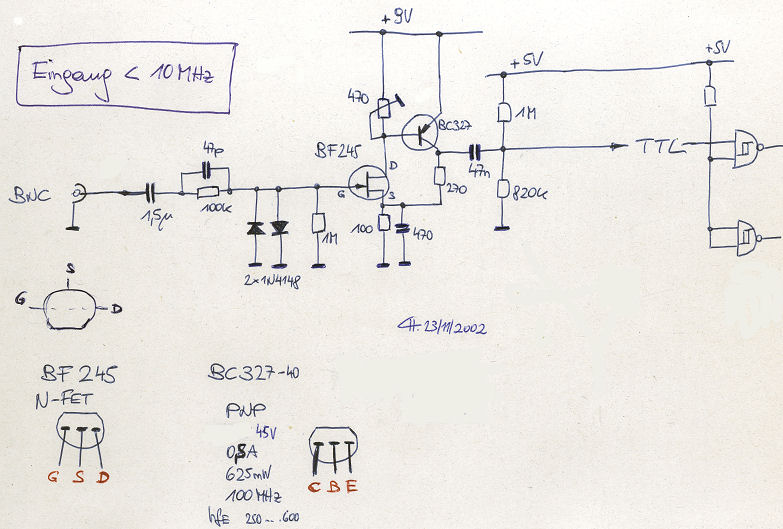 +9V
Eingang < 10MHz
+5V
+5V
470
1M
BC327
BF245
47p
D
TTL
47n
G
S
BNC
1,5µ
100K
1M
100
470
270
820K
2x1N4148
S
G
D
23/11/2002
BF245
BC327-40
N-FET
PNP
45V
0,5A
625mW
100MHz
hFE 250 - - .600
G S D
C B E